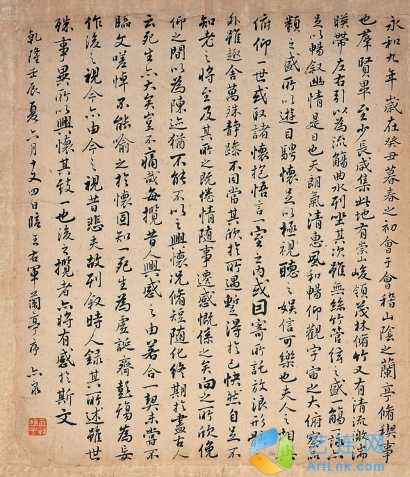 永和九年歲在癸丑暮春之初會于會稽山陰之蘭亭脩禊事
也羣賢畢至少長咸集此地有崇山峻領茂林脩竹又有清流激湍
映帶左右引以為流觴曲水列坐其次雖無絲竹管弦之盛一觴一詠
亦足以暢叙幽情是日也天朗氣清惠風和暢仰觀宇宙之大俯察品
類之盛所以遊目騁懷足以極視聽之娛信可樂也夫人之相與
俯仰一世或取諸懷抱悟言一室之內或因寄所託放浪形骸之
外雖趣舍萬殊靜躁不同當其欣於所遇蹔得於己快然自足不
知老之將至及其所之既倦情隨事遷感慨係之矣向之所欣俛
仰之間以為陳迹猶不能不以之興懷況脩短隨化終期於盡古人
云死生亦大矣豈不痛哉每攬昔人興感之由若合一契未嘗不
臨文嗟悼不能喻之於懷固知一死生為虛誕齊彭殤為妄
作後之視今亦由今之視昔悲夫故列叙時人錄其所述雖世
殊事異所以興懷其致一也後之攬者亦將有感於斯文
乾隆壬辰夏六月十又四日臨王右軍蘭亭序
艺连网
ArtLink.com